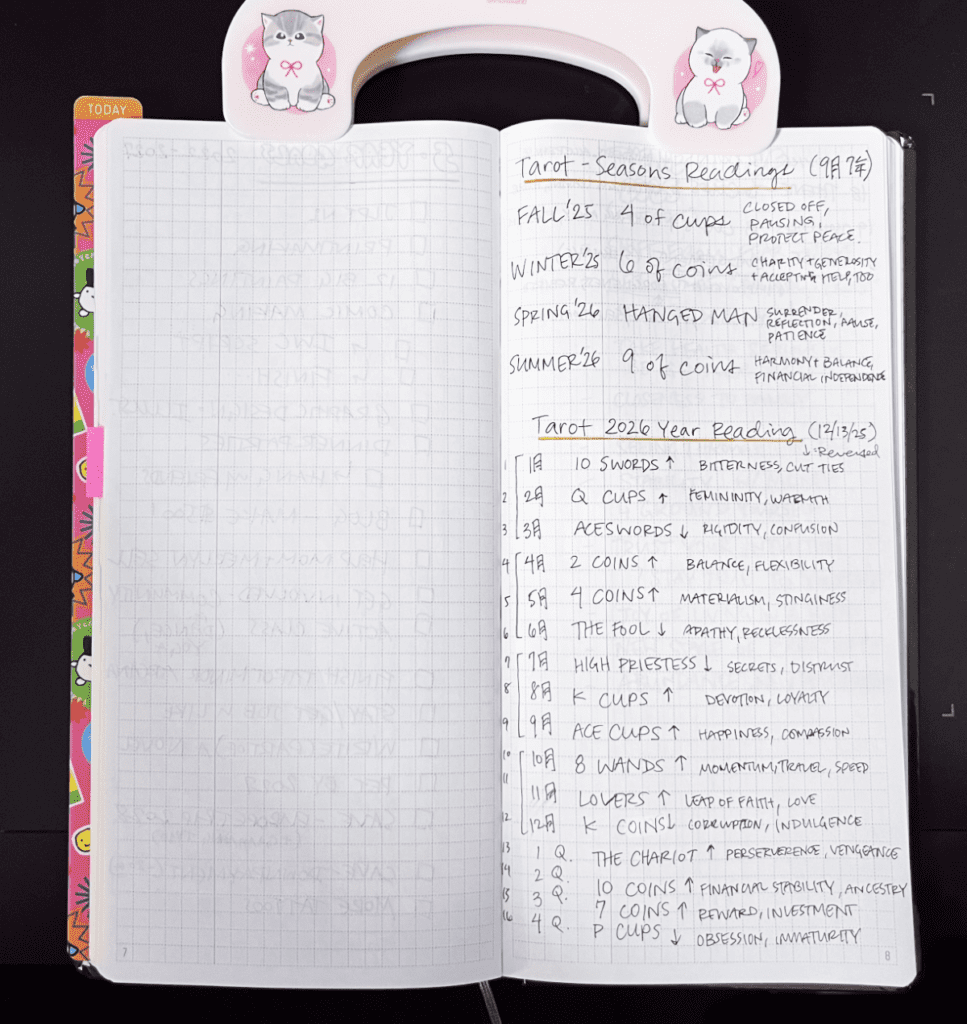 TODAY
Tarot - Seasons Readings (9月7年)
FALL '25 4 of cups CLOSED OFF,
PAUSING,
PROTECT PEACE.
WINTER '25 6 of coins CHARITY + GENEROSITY
+ ACCEPTING HELP, TOO
SPRING '26 HANGED MAN SURRENDER,
REFLECTION, PAUSE,
PATIENCE
SUMMER '26 9 of coins HARMONY + BALANCE,
FINANCIAL INDEPENDENCE
Tarot 2026 Year Reading (12/13/25)
↓: Reversed
1 1月 10 SWORDS ↑ BITTERNESS, CUT TIES
2 2月 Q CUPS ↑ FEMININITY, WARMTH
3 3月 ACE SWORDS ↓ RIGIDITY, CONFUSION
4 4月 2 COINS ↑ BALANCE, FLEXIBILITY
5 5月 4 COINS ↑ MATERIALISM, STINGINESS
6 6月 THE FOOL ↓ APATHY, RECKLESSNESS
7 7月 HIGH PRIESTESS ↓ SECRETS, DISTRUST
8 8月 K CUPS ↑ DEVOTION, LOYALTY
9 9月 ACE CUPS ↑ HAPPINESS, COMPASSION
10 10月 8 WANDS ↑ MOMENTUM, TRAVEL, SPEED
11 11月 LOVERS ↑ LEAP OF FAITH, LOVE
12 12月 K COINS ↓ CORRUPTION, INDULGENCE
13 1 Q. THE CHARIOT ↑ PERSERVERENCE, VENGEANCE
14 2 Q. 10 COINS ↑ FINANCIAL STABILITY, ANCESTRY
15 3 Q. 7 COINS ↑ REWARD, INVESTMENT
16 4 Q. P CUPS ↓ OBSESSION, IMMATURITY
7
8